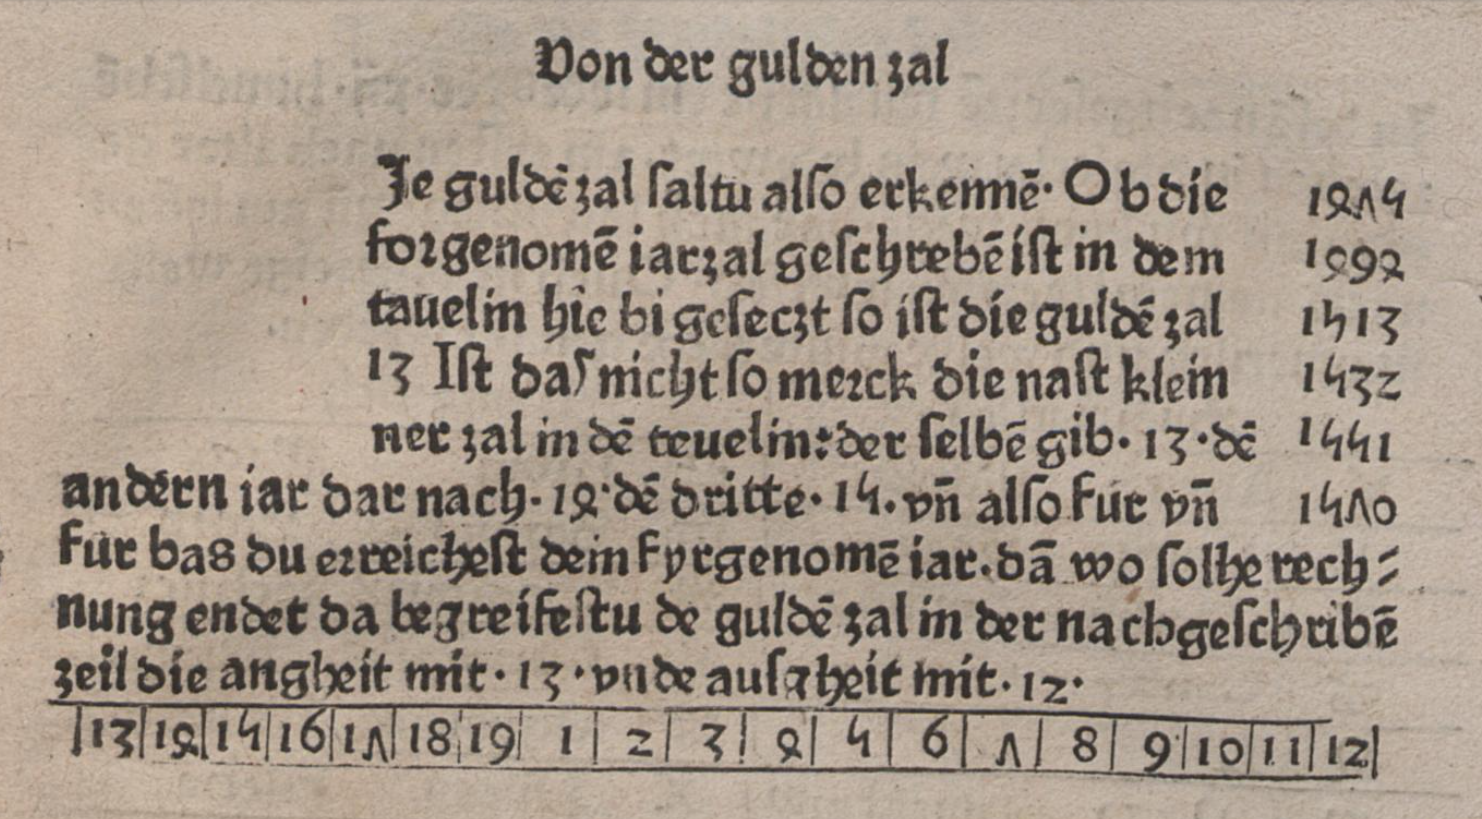 Von der gulden zal
Je guldē zal ſaltu alſo erkennē· Ob die 1475
forgenomē iarzal geſchrebē iſt in dem 1494
tauelin hie bi geſeczt ſo iſt die guldē zal 1513
13 Iſt daſ nicht ſo merck die naſt klein 1532
ner zal in dē teuelin: der ſelbē gib· 13 · dē 1551
andern iar dar nach· 14· dē dritte· 15. vn̄ alſo fur vn̄ 1570
fur bas du erreicheſt dein fyrgenomē iar. dā wo ſolhe rech⸗
nung endet da begreifeſtu de guldē zal in der nachgeſchribē
zeil die angheit mit· 13 · vnde auſgheit mit· 12·
| 13 | 14 | 15 | 16 | 17 | 18 | 19 | 1 | 2 | 3 | 4 | 5 | 6 | 7 | 8 | 9 | 10 | 11 | 12 |